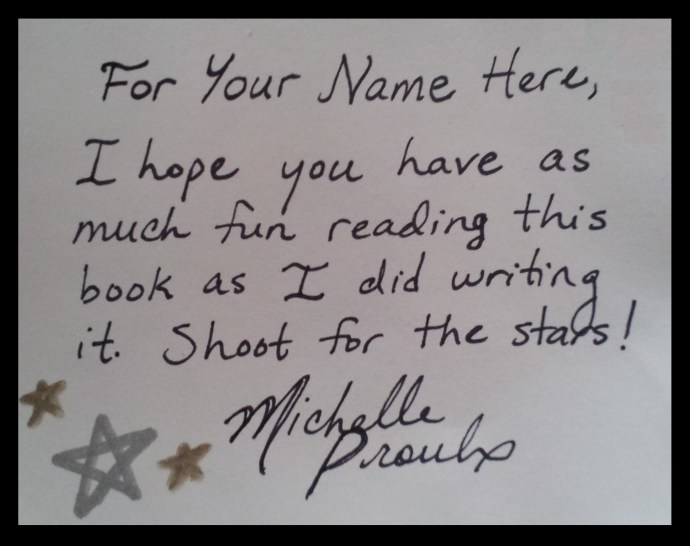 For Your Name Here,
I hope you have as
much fun reading this
book as I did writing
it. Shoot for the stars!
Michelle
Proulx